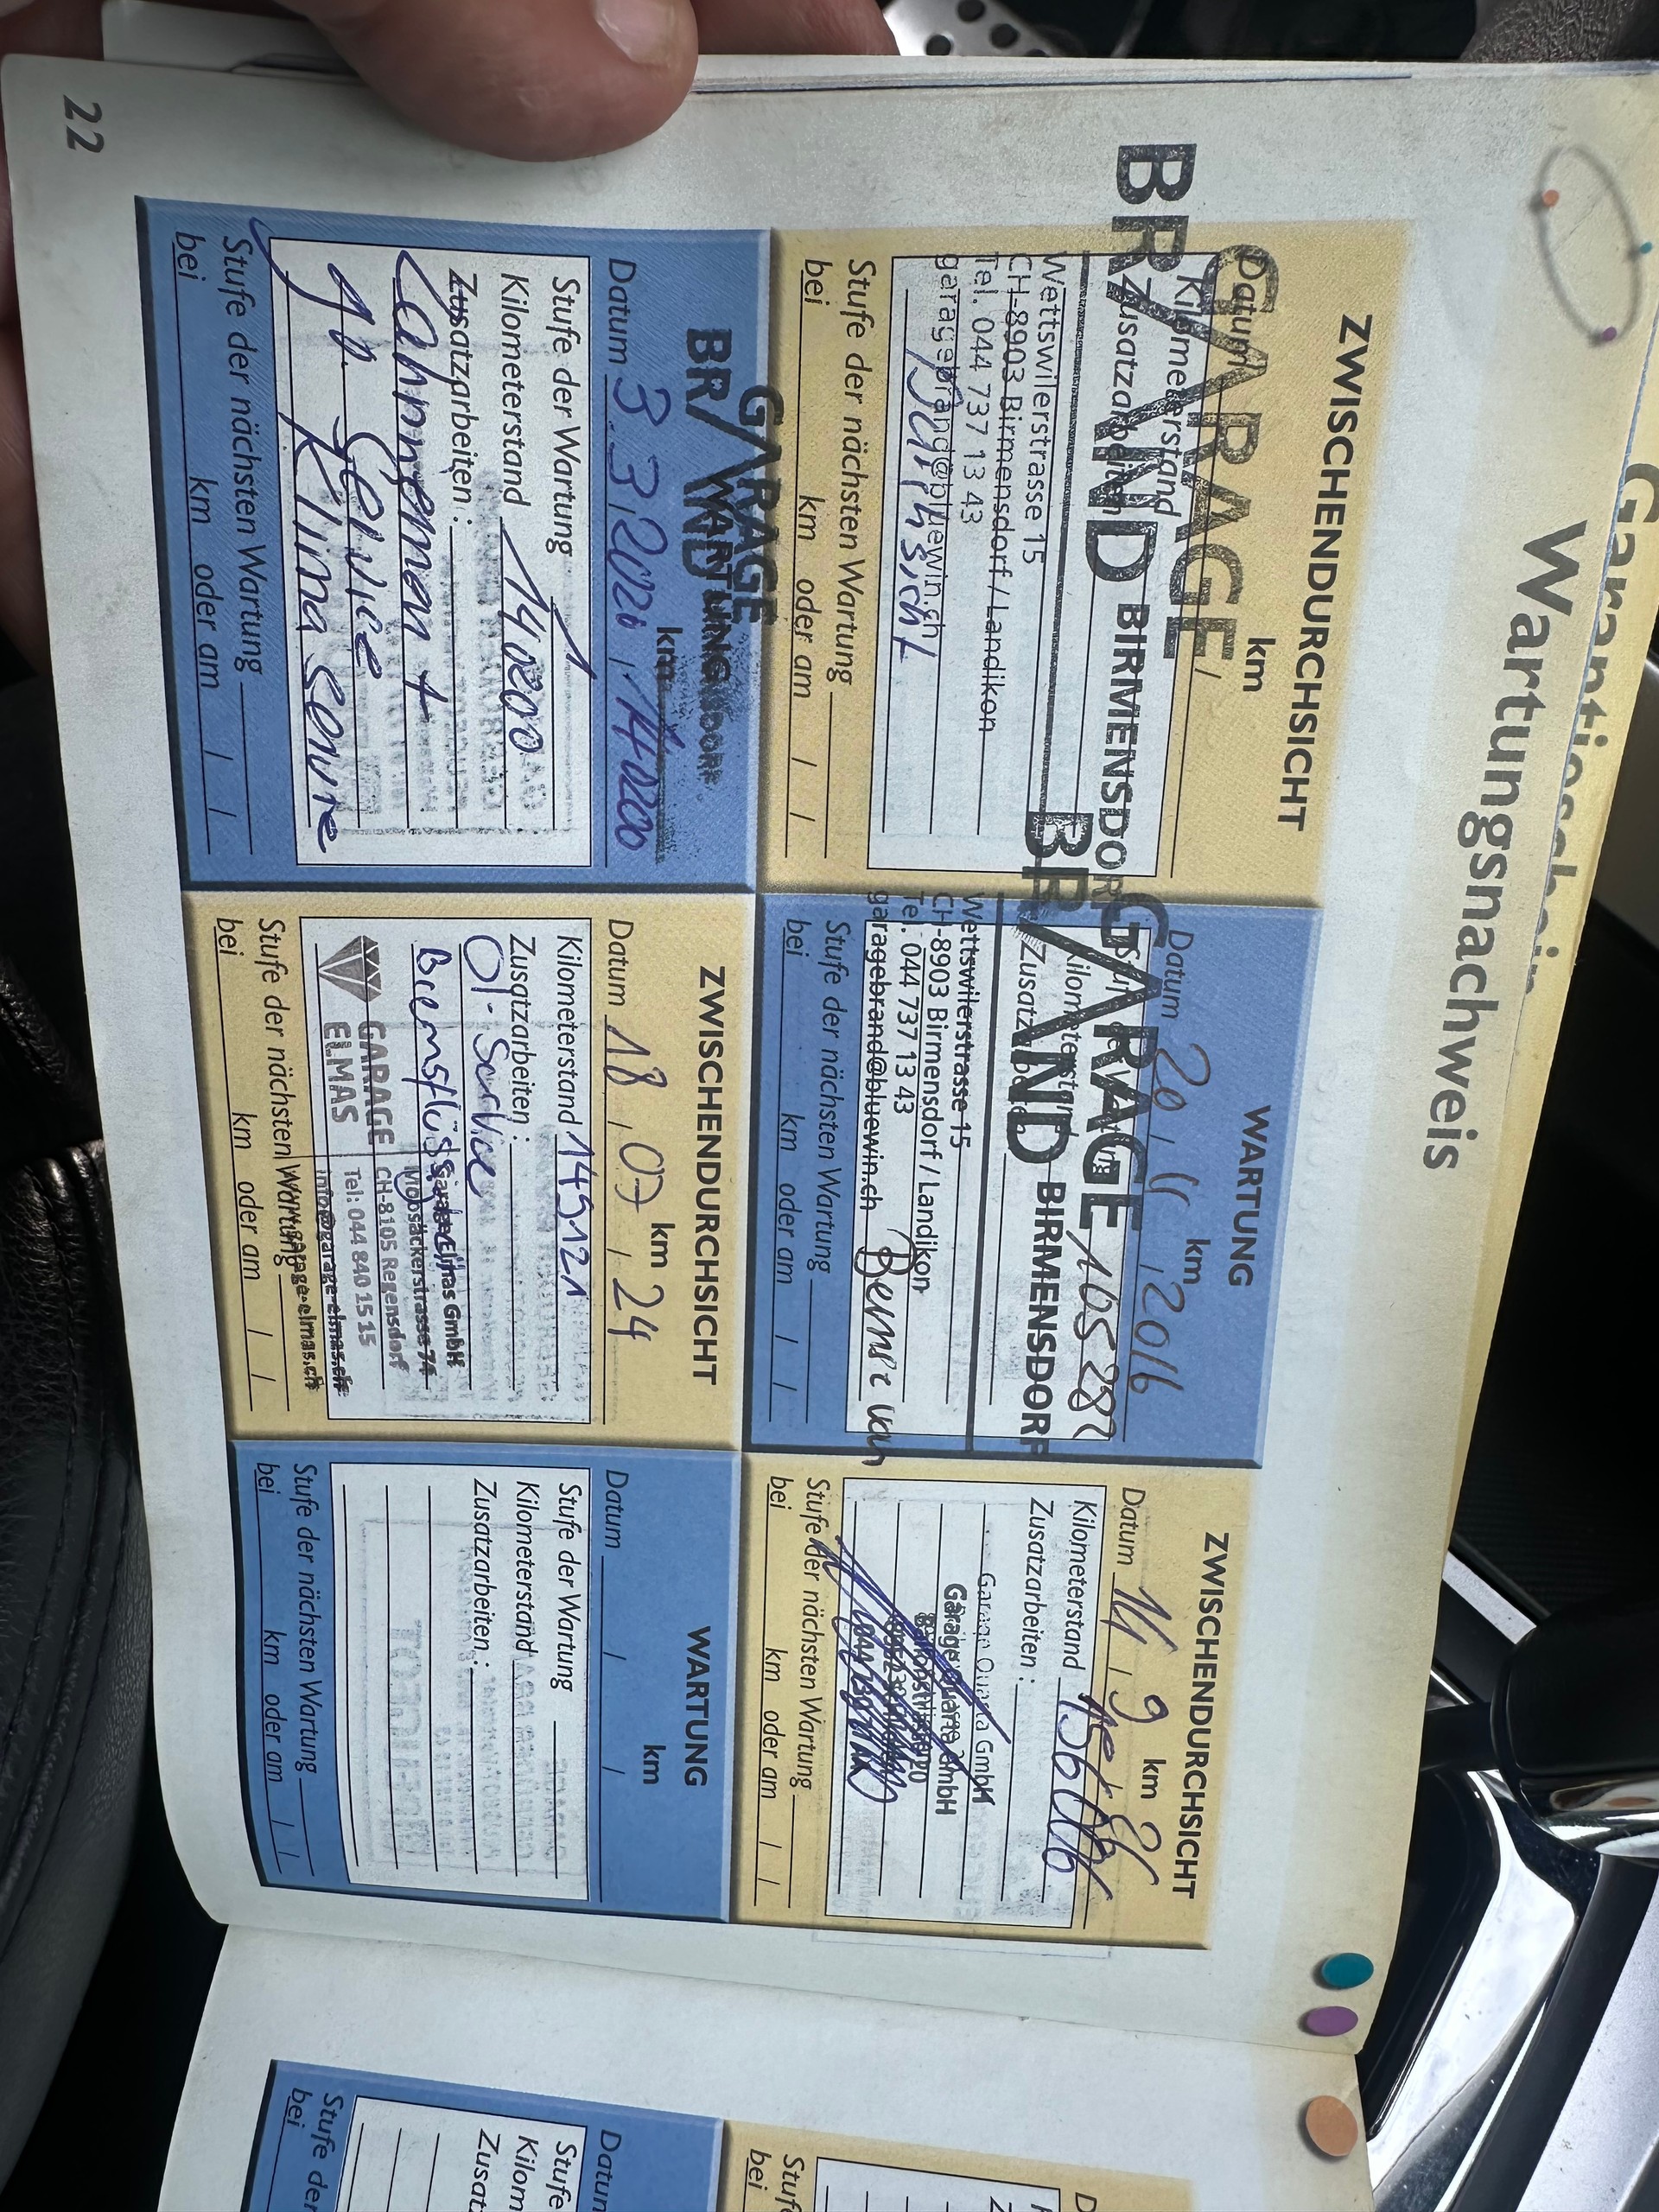 Garantieschein
Wartungsnachweis
ZWISCHENDURCHSICHT
km
Datum
GARAGE
Kilometerstand
BRAND BIRMENSDORF
Zusatzarbeiten
Wettswilerstrasse 15
CH-8903 Birmensdorf / Landikon
Tel. 044 737 13 43
garagebrand@bluewin.ch
Stufe der nächsten Wartung
bei km oder am / /
WARTUNG
km
Datum 20 / 2016
GARAGE
Kilometerstand 105 282
BRAND BIRMENSDORF
Zusatzarbeiten
Wettswilerstrasse 15
CH-8903 Birmensdorf / Landikon
Tel. 044 737 13 43
garagebrand@bluewin.ch
Stufe der nächsten Wartung
bei km oder am / /
ZWISCHENDURCHSICHT
km
Datum 14 / 9 / 21
Kilometerstand
Zusatzarbeiten :
Garage Quarta GmbH
Garage Quarta GmbH
Stufe der nächsten Wartung
bei km oder am / /
GARAGE
BRAND
WARTUNG
km
Datum 3 3 2020 140200
Stufe der Wartung
Kilometerstand 140200
Zusatzarbeiten :
Zahnriemen +
Service
Klima Service
Stufe der nächsten Wartung
bei km oder am / /
ZWISCHENDURCHSICHT
km
Datum 18 / 07 / 24
Kilometerstand 149121
Zusatzarbeiten :
Öl-Service
Bremsflüssigkeit
GARAGE
ELMAS
Garage Elmas GmbH
Moosäckerstrasse 74
CH-8105 Regensdorf
Tel: 044 840 15 15
info@garage-elmas.ch
www.garage-elmas.ch
Stufe der nächsten Wartung
bei km oder am / /
WARTUNG
km
Datum / /
Stufe der Wartung
Kilometerstand
Zusatzarbeiten :
Stufe der nächsten Wartung
bei km oder am / /
22
Stufe
bei
Datum
Stufe
Kilom
Zusat
Stufe der
bei